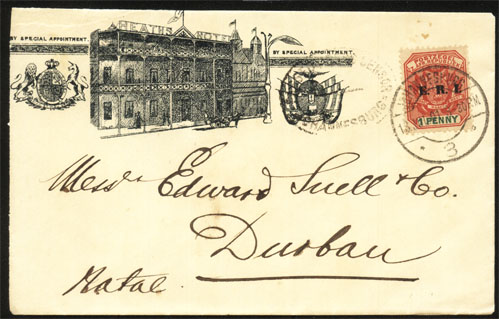 HEATH'S HOTEL
BY SPECIAL APPOINTMENT
BY SPECIAL APPOINTMENT
CENSOR
E. R. I.
1 PENNY
3
Messrs Edward Snell & Co.
Durban
Natal